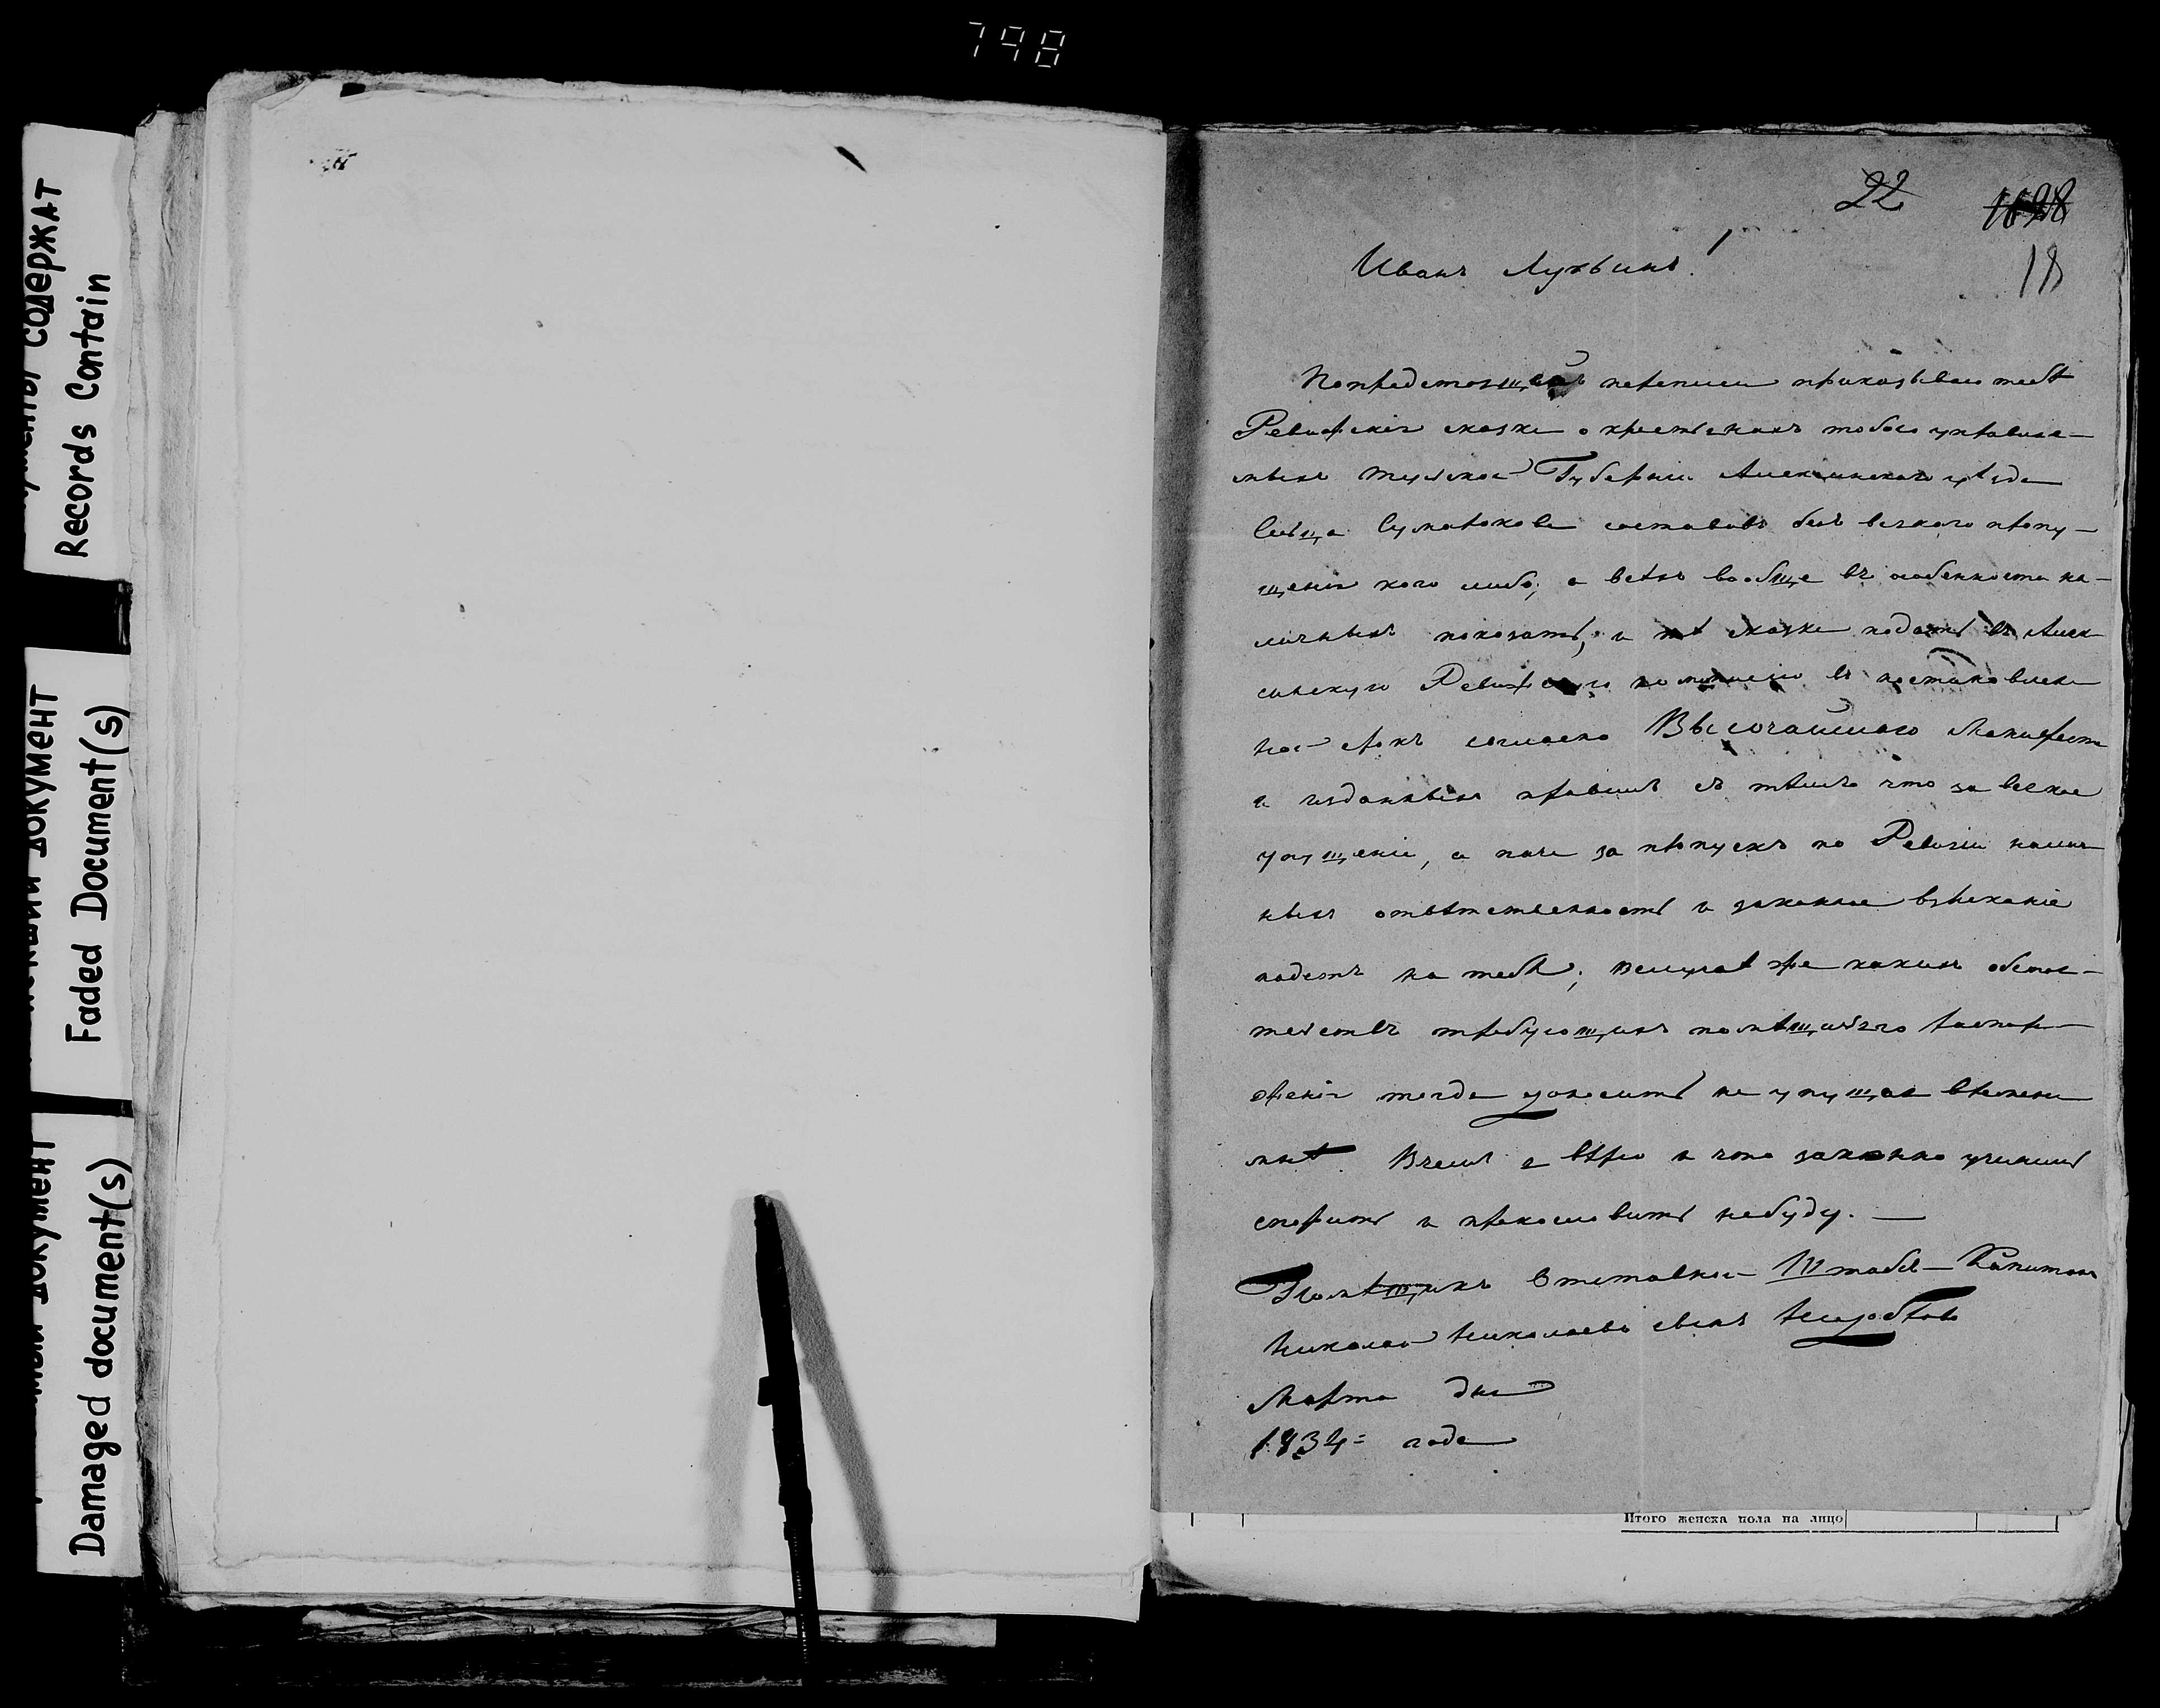 798
содержат
Records Contain
документ
Faded Document(s)
документ
Damaged document(s)
22
18
Иванъ Лукьинъ!
Попредстоящей переписи приказываю тебѣ
Ревизскія сказки о крестьянахъ тобою управляе-
мыхъ Тульской Губерніи Алексинскаго уѣзда
Сельца составивъ безъ всякаго пропу-
щенія кого либо, а всѣхъ вообще въ особенности на-
личныхъ показать, и тѣ сказки подать въ Алек-
синскую Ревизскую комисію въ постановлен
ной срокъ согласно Высочайшаго Манифеста
и изданныхъ правилъ съ тѣмъ что за всякое
упущеніе, а паче за пропускъ по Ревизіи налич
ныхъ отвѣтственность и законное взысканіе
падетъ на тебѣ; вслучаѣ же какихъ обстоя-
тельствъ требующихъ помѣщичьяго распоря-
женія тогда доносить не упущая времени
мнѣ. Въ чемъ я вѣрю и что законно учинишь
споритъ и прекословить небуду. —
Помѣщикъ Отставной Штабсъ-Капитанъ
Николай Николаевъ сынъ
Марта дня
1834= года
Итого женска пола на лицо